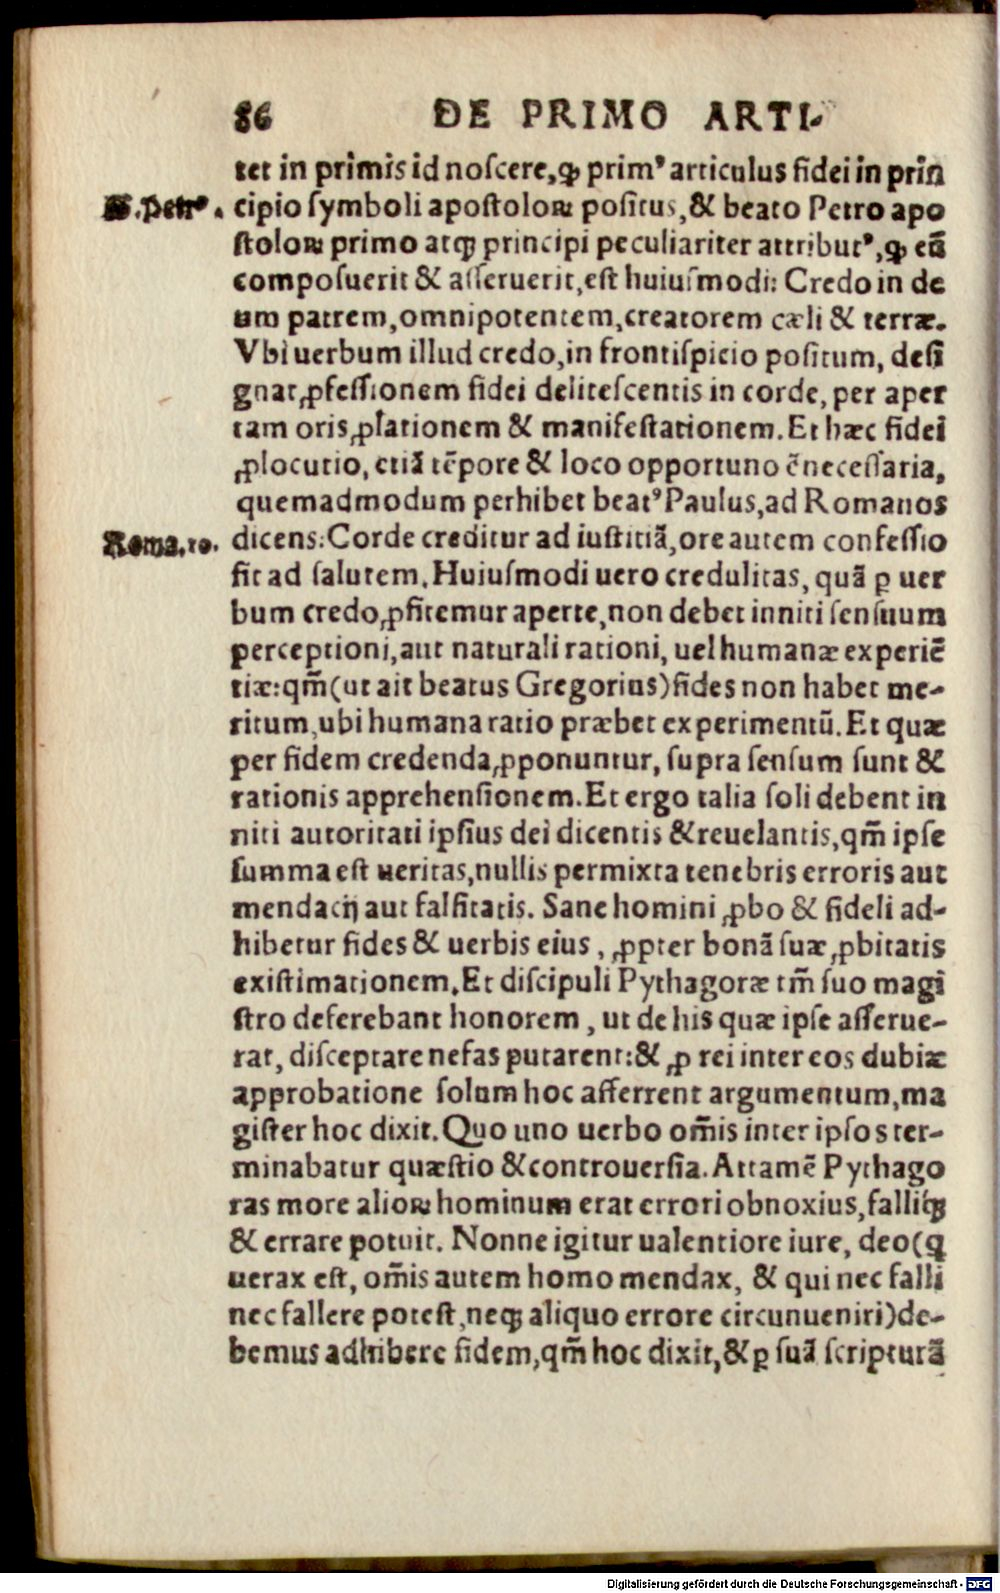 86 DE PRIMO ARTI-
tet in primis id noſcere, ꝙ primꝰ articulus fidei in prin
S. Petrꝰ. cipio ſymboli apoſtoloꝝ poſitus, & beato Petro apo
ſtoloꝝ primo atqꝫ principi peculiariter attributꝰ, ꝙ eū
compoſuerit & aſſeruerit, eſt huiuſmodi: Credo in de
um patrem, omnipotentem, creatorem cæli & terræ.
Vbi uerbum illud credo, in frontiſpicio poſitum, deſi
gnat ꝓfeſſionem fidei deliteſcentis in corde, per aper
tam oris ꝓlationem & manifeſtationem. Et hæc fidei
ꝓlocutio, etiā tēpore & loco opportuno ē neceſſaria,
quemadmodum perhibet beatꝰ Paulus, ad Romanos
Roma.10. dicens: Corde creditur ad iuſtitiā, ore autem confeſſio
fit ad ſalutem. Huiuſmodi uero credulitas, quā ꝑ uer
bum credo, ꝓfitemur aperte, non debet inniti ſenſuum
perceptioni, aut naturali rationi, uel humanæ experiē
tiæ: qm̄ (ut ait beatus Gregorius) fides non habet me-
ritum, ubi humana ratio præbet experimentū. Et quæ
per fidem credenda ꝓponuntur, ſupra ſenſum ſunt &
rationis apprehenſionem. Et ergo talia ſoli debent in
niti autoritati ipſius dei dicentis & reuelantis, qm̄ ipſe
ſumma eſt ueritas, nullis permixta tenebris erroris aut
mendacij aut falſitatis. Sane homini ꝓbo & fideli ad-
hibetur fides & uerbis eius, ꝓpter bonā ſuæ ꝓbitatis
exiſtimationem. Et diſcipuli Pythagoræ tm̄ ſuo magi
ſtro deferebant honorem, ut de his quæ ipſe aſſerue-
rat, diſceptare nefas putarent: & ꝓ rei inter eos dubiæ
approbatione ſolum hoc afferrent argumentum, ma
giſter hoc dixit. Quo uno uerbo om̄is inter ipſos ter-
minabatur quæſtio & controuerſia. Attamē Pythago
ras more alioꝝ hominum erat errori obnoxius, falliqꝫ
& errare potuit. Nonne igitur ualentiore iure, deo (ꝗ
uerax eſt, om̄is autem homo mendax, & qui nec falli
nec fallere poteſt, neqꝫ aliquo errore circunueniri) de-
bemus adhibere fidem, qm̄ hoc dixit, & ꝑ ſuā ſcripturā
Digitalisierung gefördert durch die Deutsche Forschungsgemeinschaft - DFG